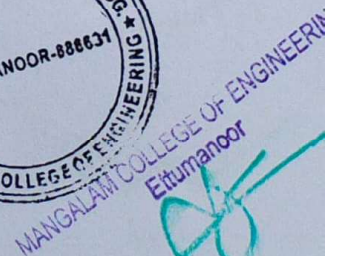 G. ★
ANOOR-686631
OLLEGE OF ENGINEERING ★
MANGALAM COLLEGE OF ENGINEERIN
Ettumanoor